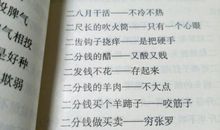 二八月干活——不冷不热
二尺长的吹火筒——只有一个心眼
二齿钩子挠痒——是把硬手
二分钱的醋——又酸又贱
二发钱不花——存起来
二分钱的羊肉——不大点
二分钱买个羊蹄子——咬筋子
二分钱做买卖——穷张罗
投脾气
气相投
是好种
欺弱